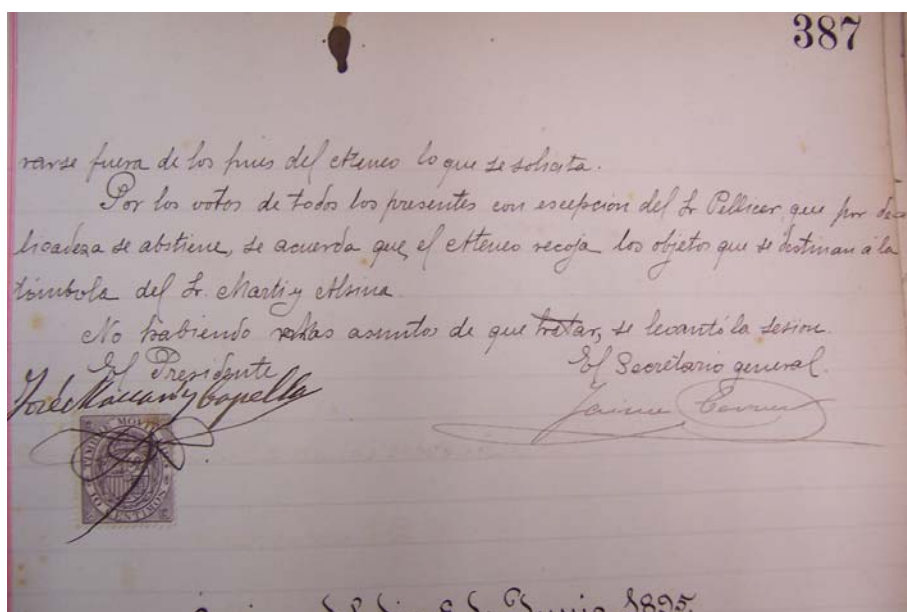 387
rarse fuera de los fines del Ateneo lo que se solicita.
Por los votos de todos los presentes con escepcion del Sr Pellicer, que por de=
licadeza se abstiene, se acuerda que el Ateneo recoja los objetos que se destinan á la
tómbola del Sr. Marti y Alsina.
No habiendo mas asunto de que tratar, se levantó la sesion.
El Presidente
El Secretario general.
José y Capella
Jaime
TIMBRE MOVIL
10 CENTIMOS
Junio 1895.